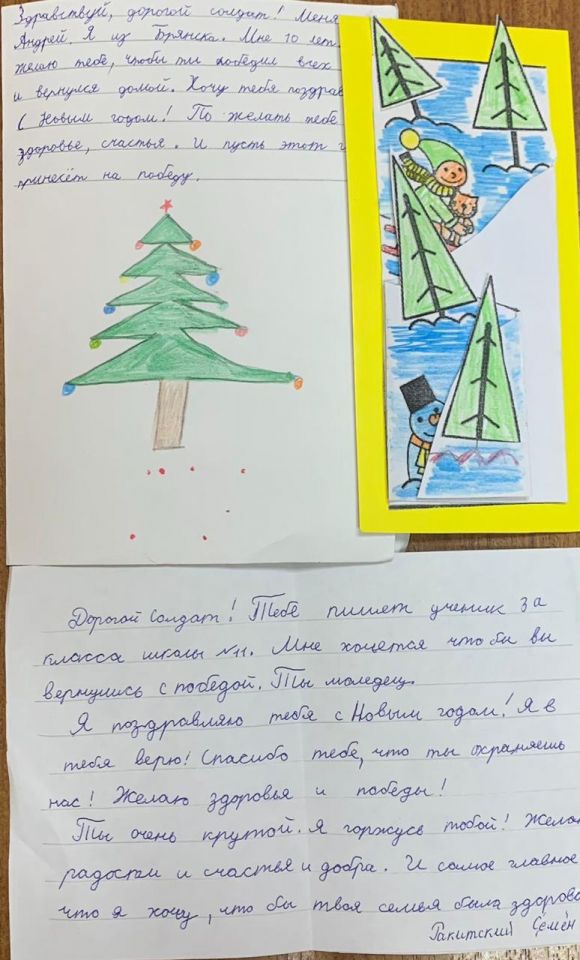 Здравствуй, дорогой солдат! Меня
Андрей. Я из Брянска. Мне 10 лет.
желаю тебе, чтобы ты победил всех
и вернулся домой. Хочу тебя поздрав
С Новым годом! По желать тебе
здоровье, счастья. И пусть этот г
принесёт на победу.
Дорогой Солдат! Тебе пишет ученик 3а
класса школы №11. Мне хочется что бы вы
вернулись с победой. Ты молодец.
Я поздравляю тебя с Новым годом! Я в
тебя верю! Спасибо тебе, что ты охраняешь
нас! Желаю здоровья и победы!
Ты очень крутой. Я горжусь тобой! Желаю
радости и счастья и добра. И самое главное
что я хочу, что бы твоя семья была здорова
Ракитский Семён